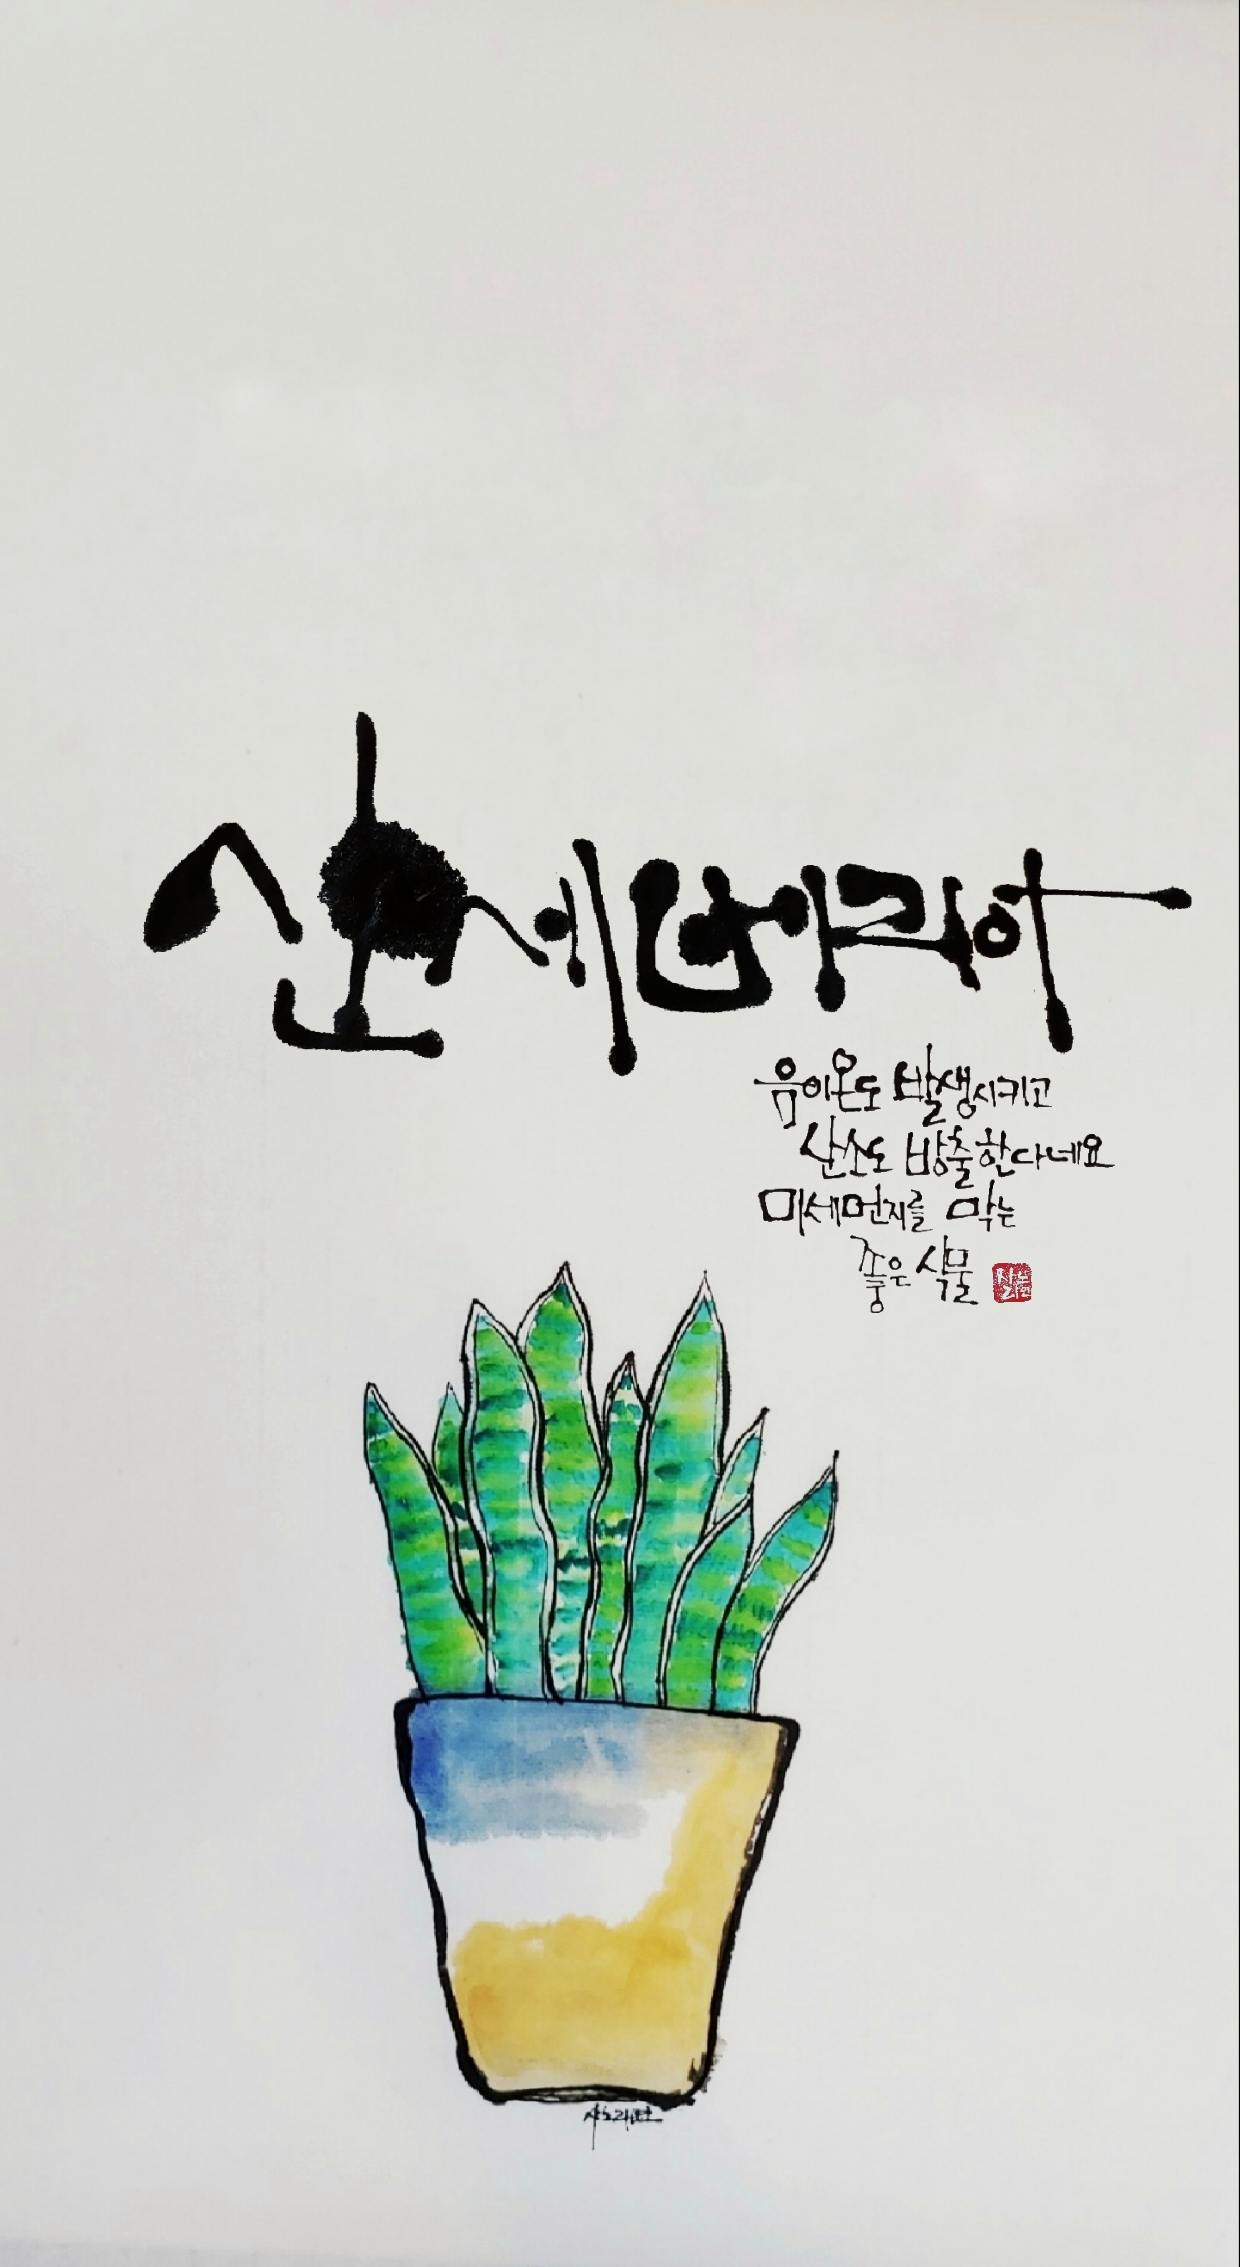 산세베리아
음이온도 발생시키고
산소도 방출한다네요
미세먼지를 막는
좋은 식물